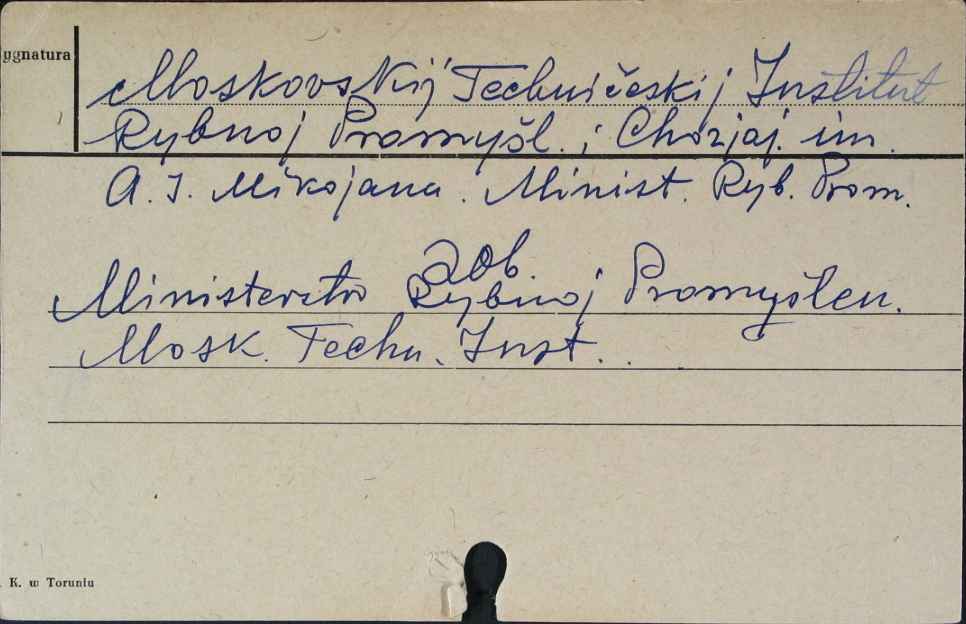 ygnatura
Moskovskij Techničeskij Institut
Rybnoj Promyšl. i Chozjaj. im.
A. I. Mikojana. Minist. Ryb. Prom.
zob.
Ministerstvo Rybnoj Promyšlen.
Mosk. Techn. Inst.
K. w Toruniu